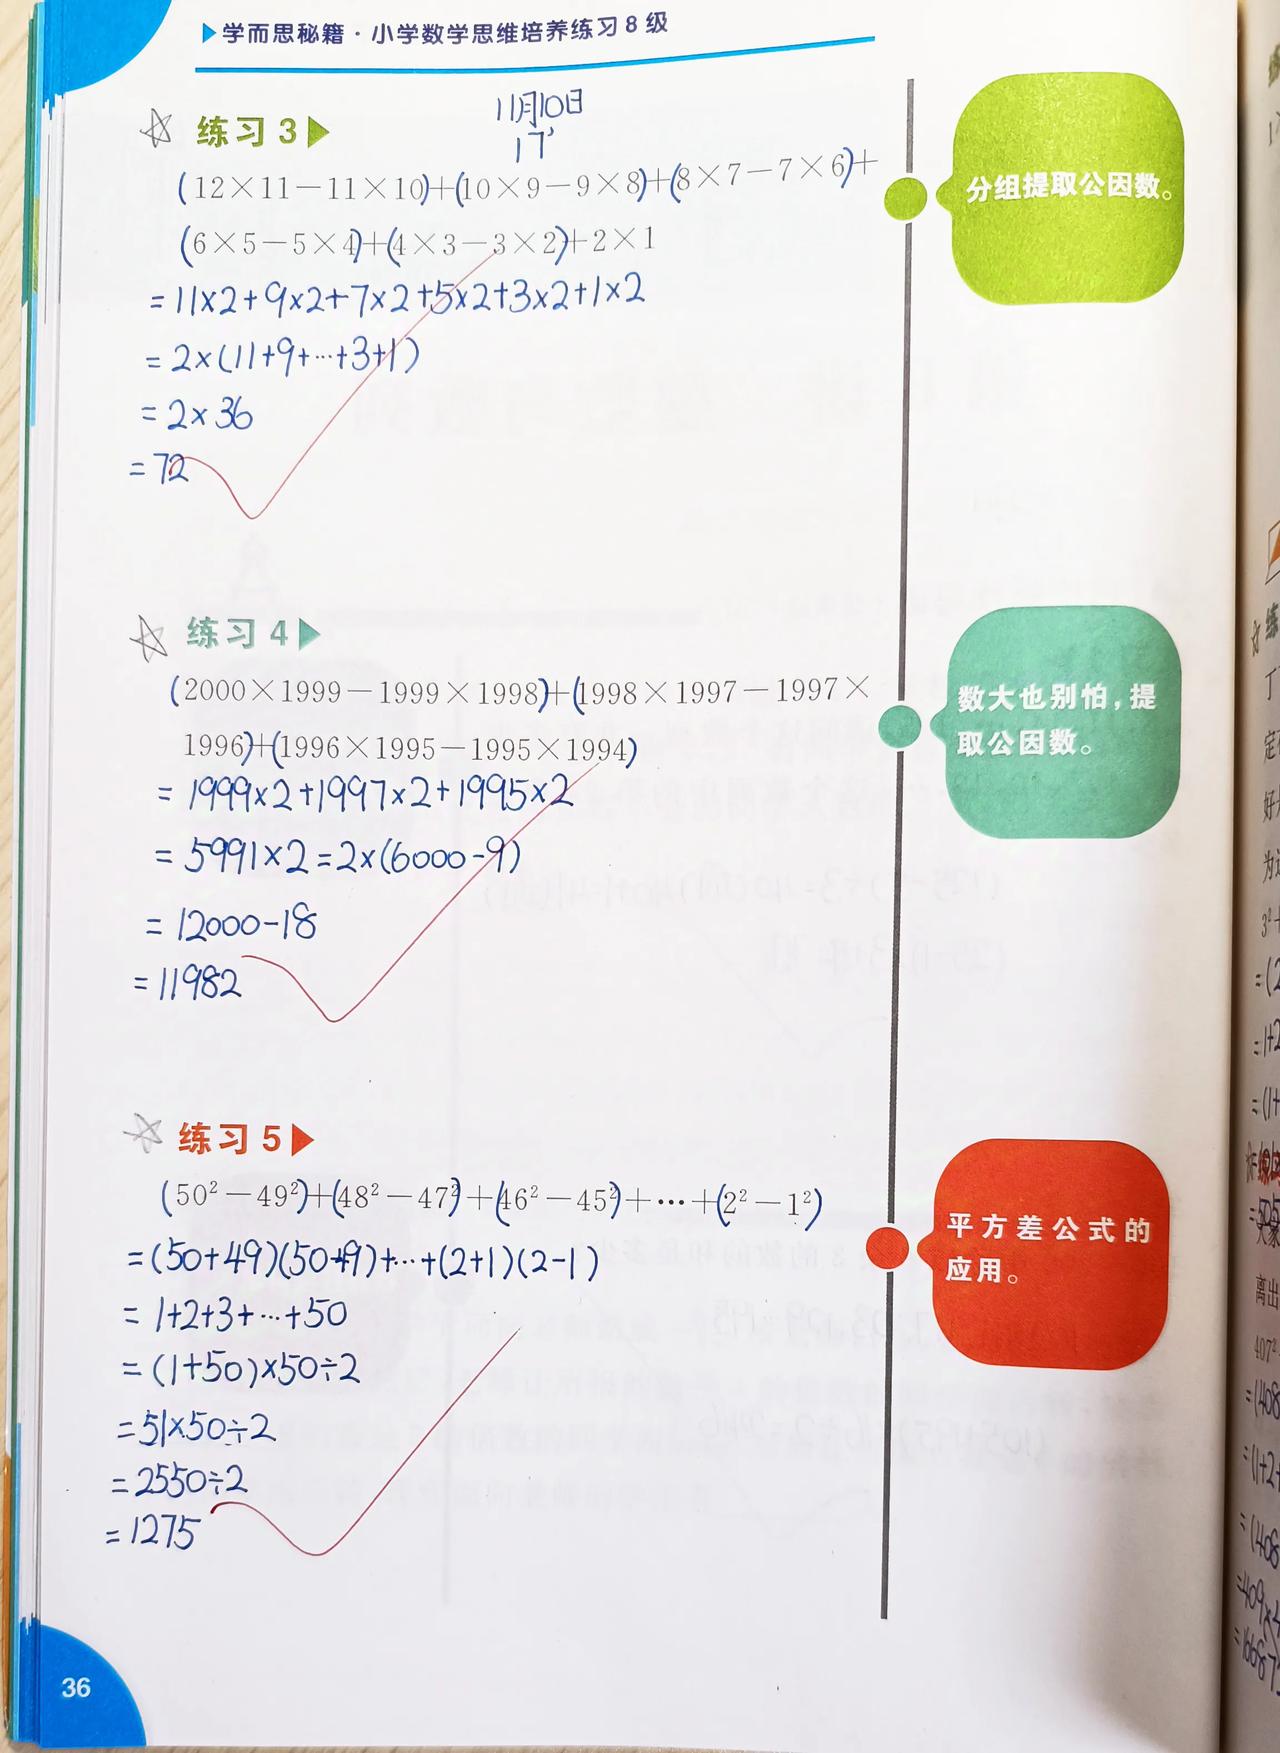 学而思秘籍·小学数学思维培养练习8级
11月10日
17'
练习3
(12×11-11×10)+(10×9-9×8)+(8×7-7×6)+
(6×5-5×4)+(4×3-3×2)+2×1
=11×2+9×2+7×2+5×2+3×2+1×2
=2×(11+9+…+3+1)
=2×36
=72
分组提取公因数。
练习4
(2000×1999-1999×1998)+(1998×1997-1997×
1996)+(1996×1995-1995×1994)
=1999×2+1997×2+1995×2
=5991×2=2×(6000-9)
=12000-18
=11982
数大也别怕,提
取公因数。
练习5
(50²-49²)+(48²-47²)+(46²-45²)+…+(2²-1²)
=(50+49)(50-49)+…+(2+1)(2-1)
=1+2+3+…+50
=(1+50)×50÷2
=51×50÷2
=2550÷2
=1275
平方差公式的
应用。
36